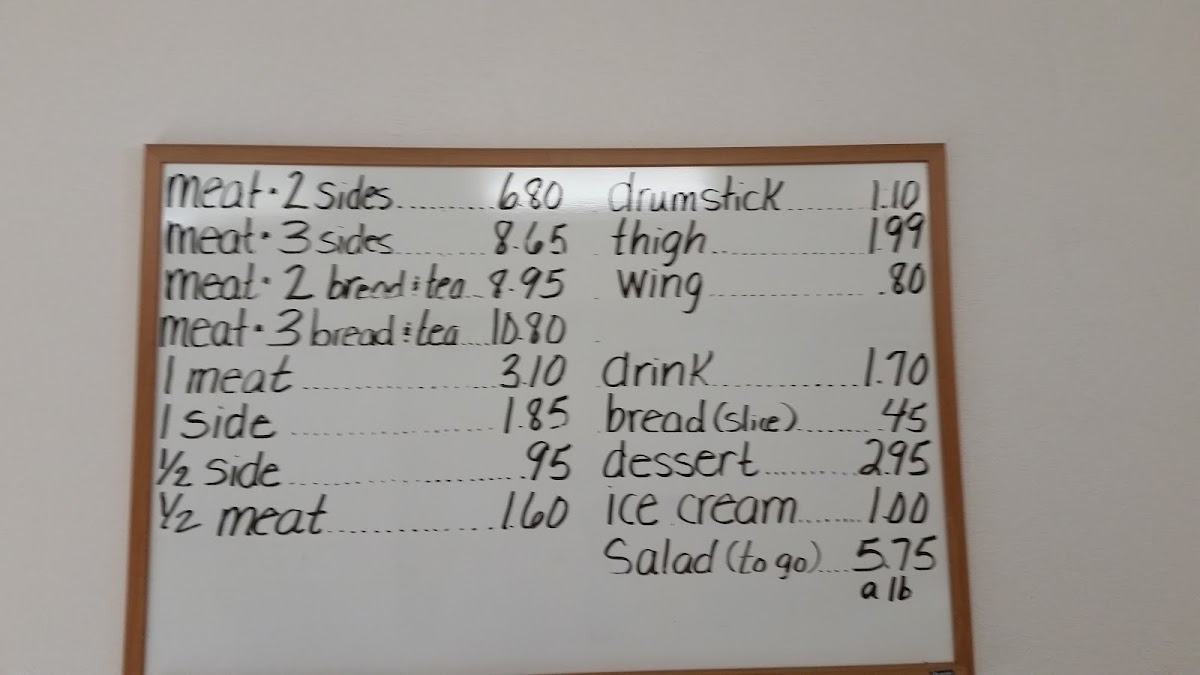 meat · 2 sides..........6.80
meat · 3 sides..........8.65
meat · 2 bread & tea..8.95
meat · 3 bread & tea....10.80
1 meat....................3.10
1 side......................1.85
1/2 side........................95
1/2 meat................1.60
drumstick..........1.10
thigh..................1.99
wing.....................80
drink.................1.70
bread (slice)........45
dessert..........2.95
ice cream.......1.00
Salad (to go)...5.75
a lb